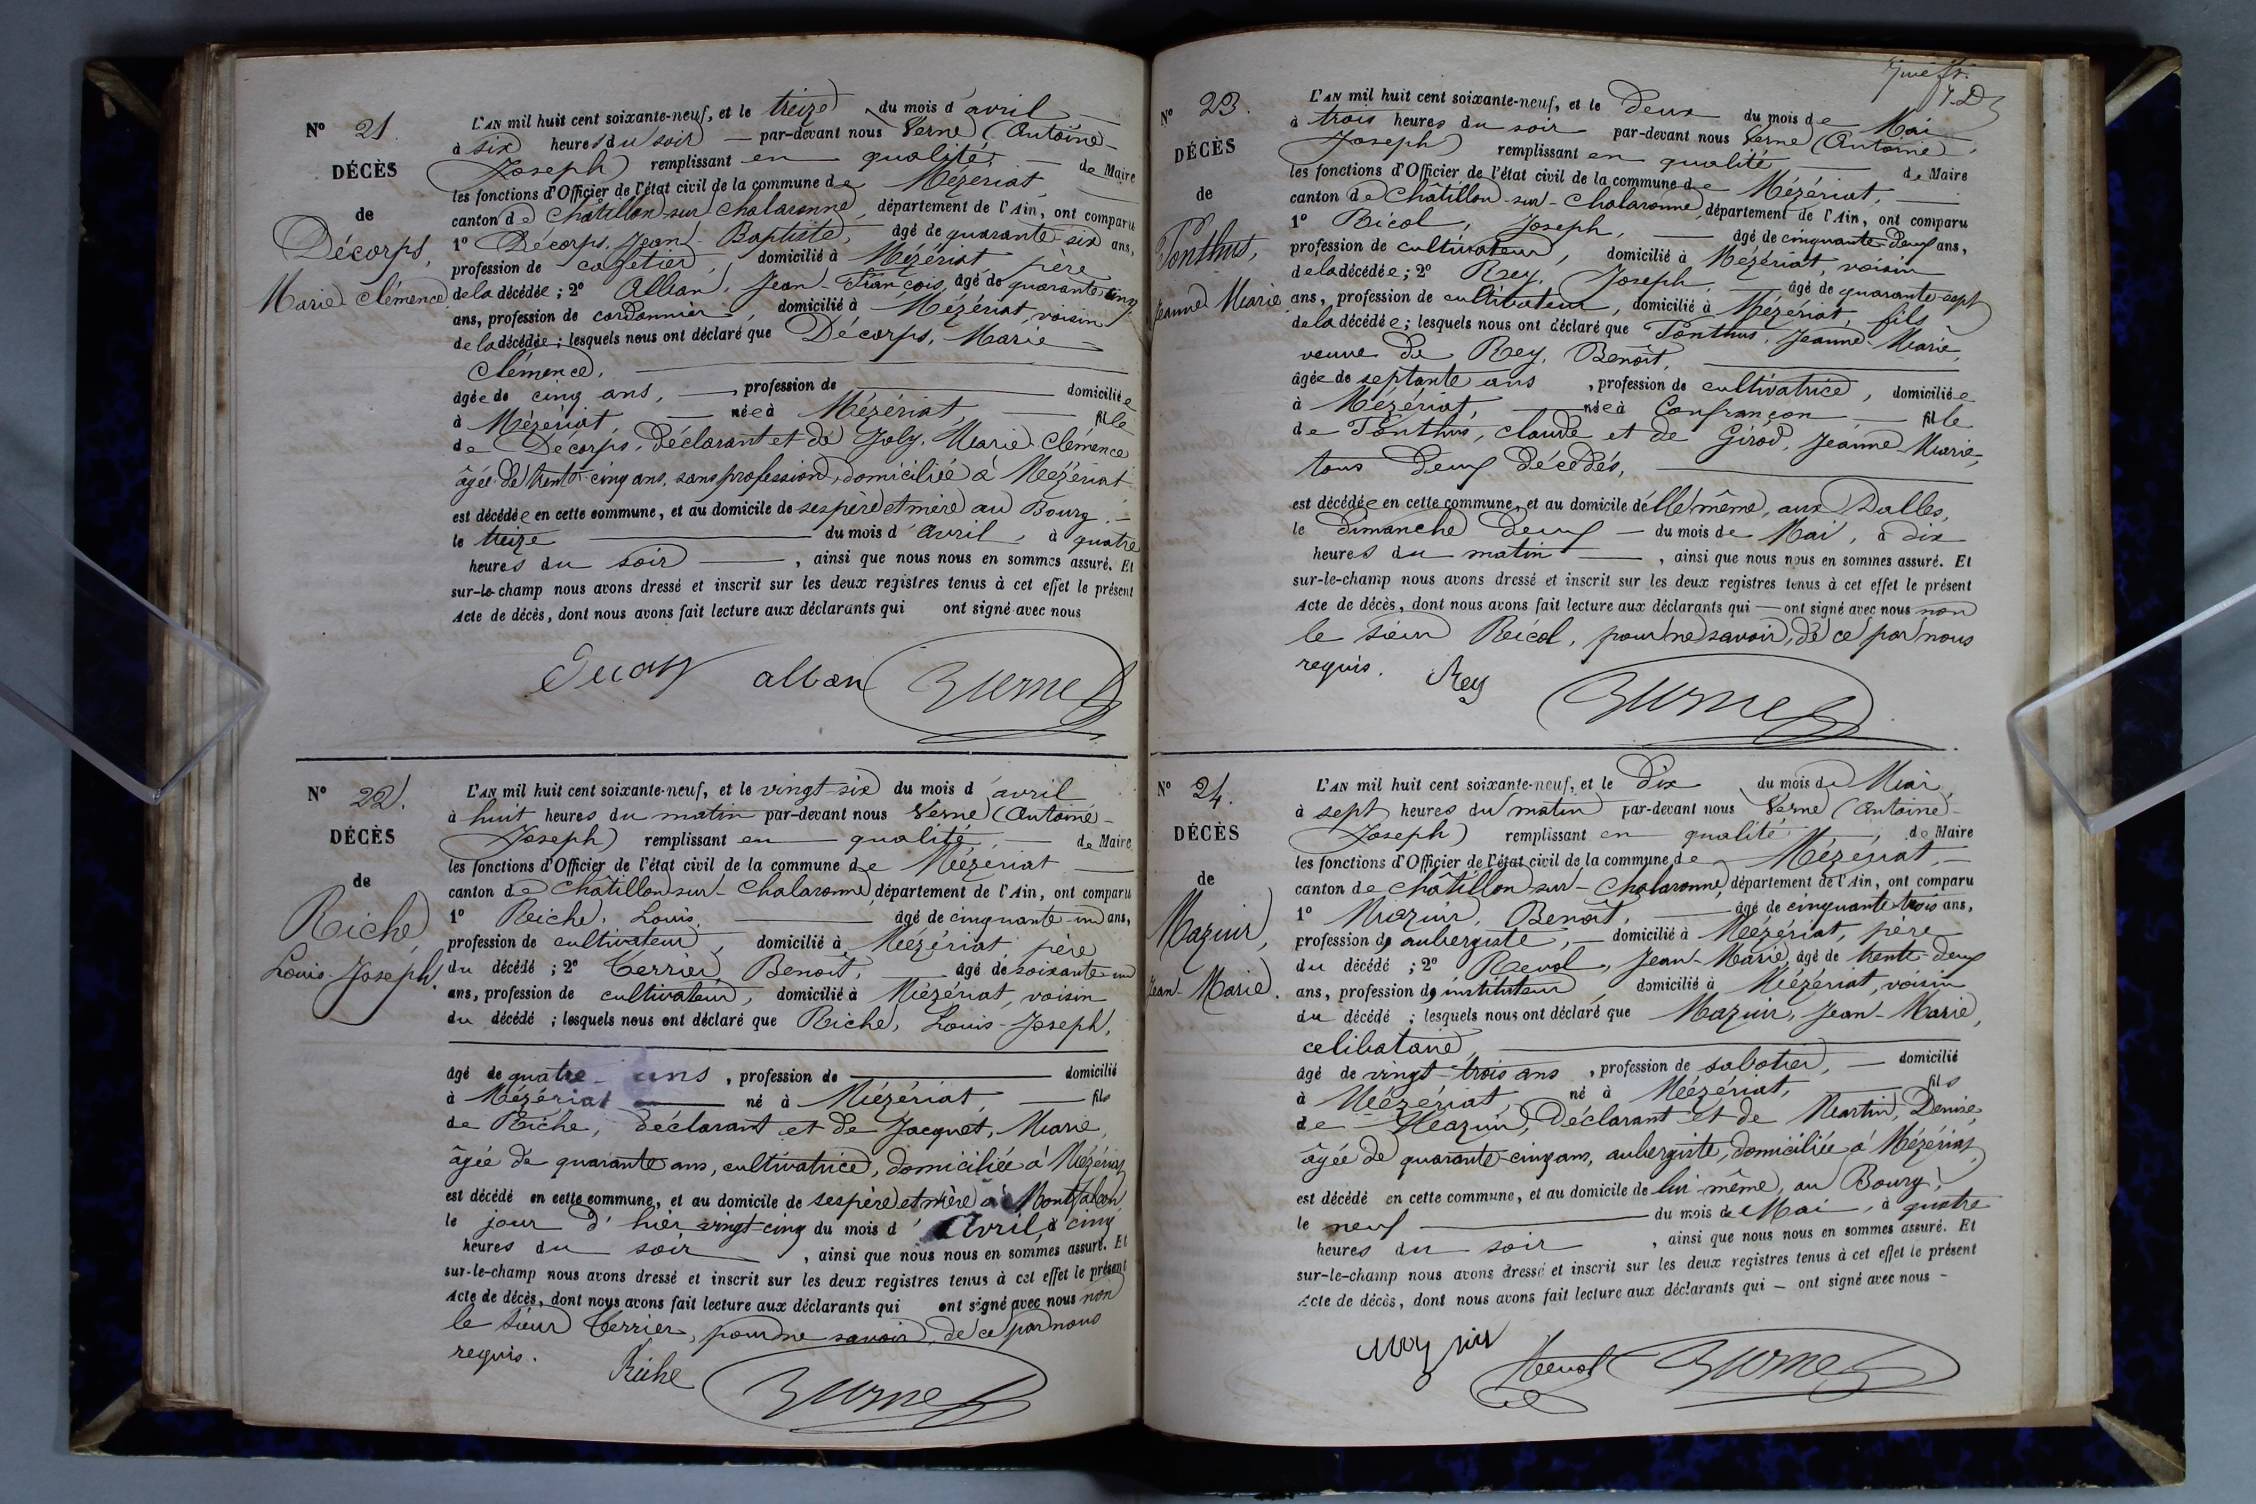 N° 21.
DÉCÈS
de
Décorps,
Marie Clémence
L'AN mil huit cent soixante-neuf, et le treize du mois d'avril
à six heures du soir par-devant nous Verne (Antoine-
Joseph) remplissant en qualité de Maire
les fonctions d'Officier de l'état civil de la commune de Mézériat,
canton de Châtillon-sur-Chalaronne, département de l'Ain, ont comparu
1° Décorps, Jean-Baptiste, âgé de quarante-six ans,
profession de cafetier, domicilié à Mézériat père
de la décédée ; 2° Alban, Jean-François, âgé de quarante cinq
ans, profession de cordonnier, domicilié à Mézériat, voisin
de la décédée ; lesquels nous ont déclaré que Décorps, Marie-
Clémence,
âgée de cinq ans, profession de domiciliée
à Mézériat née à Mézériat, fille
de Décorps, déclarant et de Joly, Marie Clémence
âgée de trente-cinq ans, sans profession, domiciliée à Mézériat
est décédée en cette commune, et au domicile de ses père et mère au Bourg
le treize du mois d'avril, à quatre
heures du soir, ainsi que nous nous en sommes assuré. Et
sur-le-champ nous avons dressé et inscrit sur les deux registres tenus à cet effet le présent
Acte de décès, dont nous avons fait lecture aux déclarants qui ont signé avec nous
alban Verne
N° 22.
DÉCÈS
de
Riche,
Louis-Joseph.
L'AN mil huit cent soixante-neuf, et le vingt-six du mois d'avril
à huit heures du matin par-devant nous Verne (Antoine-
Joseph) remplissant en qualité de Maire
les fonctions d'Officier de l'état civil de la commune de Mézériat
canton de Châtillon-sur-Chalaronne, département de l'Ain, ont comparu
1° Riche, Louis, âgé de cinquante-un ans,
profession de cultivateur, domicilié à Mézériat père
du décédé ; 2° Terrier, Benoît, âgé de soixante-un
ans, profession de cultivateur, domicilié à Mézériat, voisin
du décédé ; lesquels nous ont déclaré que Riche, Louis-Joseph,
âgé de quatre ans, profession de domicilié
à Mézériat né à Mézériat, fils
de Riche, déclarant et de Jacquet, Marie,
âgée de quarante ans, cultivatrice, domiciliée à Mézériat
est décédé en cette commune, et au domicile de ses père et mère à Montfalcon
le jour d'hier vingt-cinq du mois d'Avril, à cinq
heures du soir, ainsi que nous nous en sommes assuré. Et
sur-le-champ nous avons dressé et inscrit sur les deux registres tenus à cet effet le présent
Acte de décès, dont nous avons fait lecture aux déclarants qui ont signé avec nous non
le sieur Terrier, pour ne savoir, de ce par nous
requis. Riche Verne
N° 23.
DÉCÈS
de
Ponthus,
Jeanne Marie
L'AN mil huit cent soixante-neuf, et le deux du mois de Mai
à trois heures du soir par-devant nous Verne (Antoine-
Joseph) remplissant en qualité de Maire
les fonctions d'Officier de l'état civil de la commune de Mézériat,
canton de Châtillon-sur-Chalaronne, département de l'Ain, ont comparu
1° Bicol, Joseph, âgé de cinquante-deux ans,
profession de cultivateur, domicilié à Mézériat, voisin
de la décédée ; 2° Rey, Joseph, âgé de quarante-sept
ans, profession de cultivateur, domicilié à Mézériat, fils
de la décédée ; lesquels nous ont déclaré que Ponthus, Jeanne-Marie,
veuve de Rey, Benoît,
âgée de septante ans, profession de cultivatrice, domiciliée
à Mézériat, née à Confrançon fille
de Ponthus, Claude et de Girod, Jeanne-Marie,
tous deux décédés,
est décédée en cette commune, et au domicile d'elle même, aux Dalles,
le dimanche deux du mois de Mai, à dix
heures du matin, ainsi que nous nous en sommes assuré. Et
sur-le-champ nous avons dressé et inscrit sur les deux registres tenus à cet effet le présent
Acte de décès, dont nous avons fait lecture aux déclarants qui ont signé avec nous non
le sieur Bicol, pour ne savoir, de ce par nous
requis. Rey Verne
N° 24.
DÉCÈS
de
Mazuir,
Jean-Marie.
L'AN mil huit cent soixante-neuf, et le dix du mois de Mai,
à sept heures du matin par-devant nous Verne (Antoine-
Joseph) remplissant en qualité, de Maire
les fonctions d'Officier de l'état civil de la commune de Mézériat,
canton de Châtillon-sur-Chalaronne, département de l'Ain, ont comparu
1° Mazuir, Benoît, âgé de cinquante-trois ans,
profession de aubergiste, domicilié à Mézériat, père
du décédé ; 2° Revol, Jean-Marie, âgé de trente-deux
ans, profession de instituteur, domicilié à Mézériat, voisin
du décédé ; lesquels nous ont déclaré que Mazuir, Jean-Marie,
celibataire
âgé de vingt-trois ans, profession de sabotier, domicilié
à Mézériat, né à Mézériat, fils
de Mazuir, déclarant et de Martin, Denise,
âgée de quarante-cinq ans, aubergiste, domiciliée à Mézériat,
est décédé en cette commune, et au domicile de lui-même, au Bourg,
le neuf du mois de Mai, à quatre
heures du soir, ainsi que nous nous en sommes assuré. Et
sur-le-champ nous avons dressé et inscrit sur les deux registres tenus à cet effet le présent
Acte de décès, dont nous avons fait lecture aux déclarants qui – ont signé avec nous –
Mazuir Revol Verne